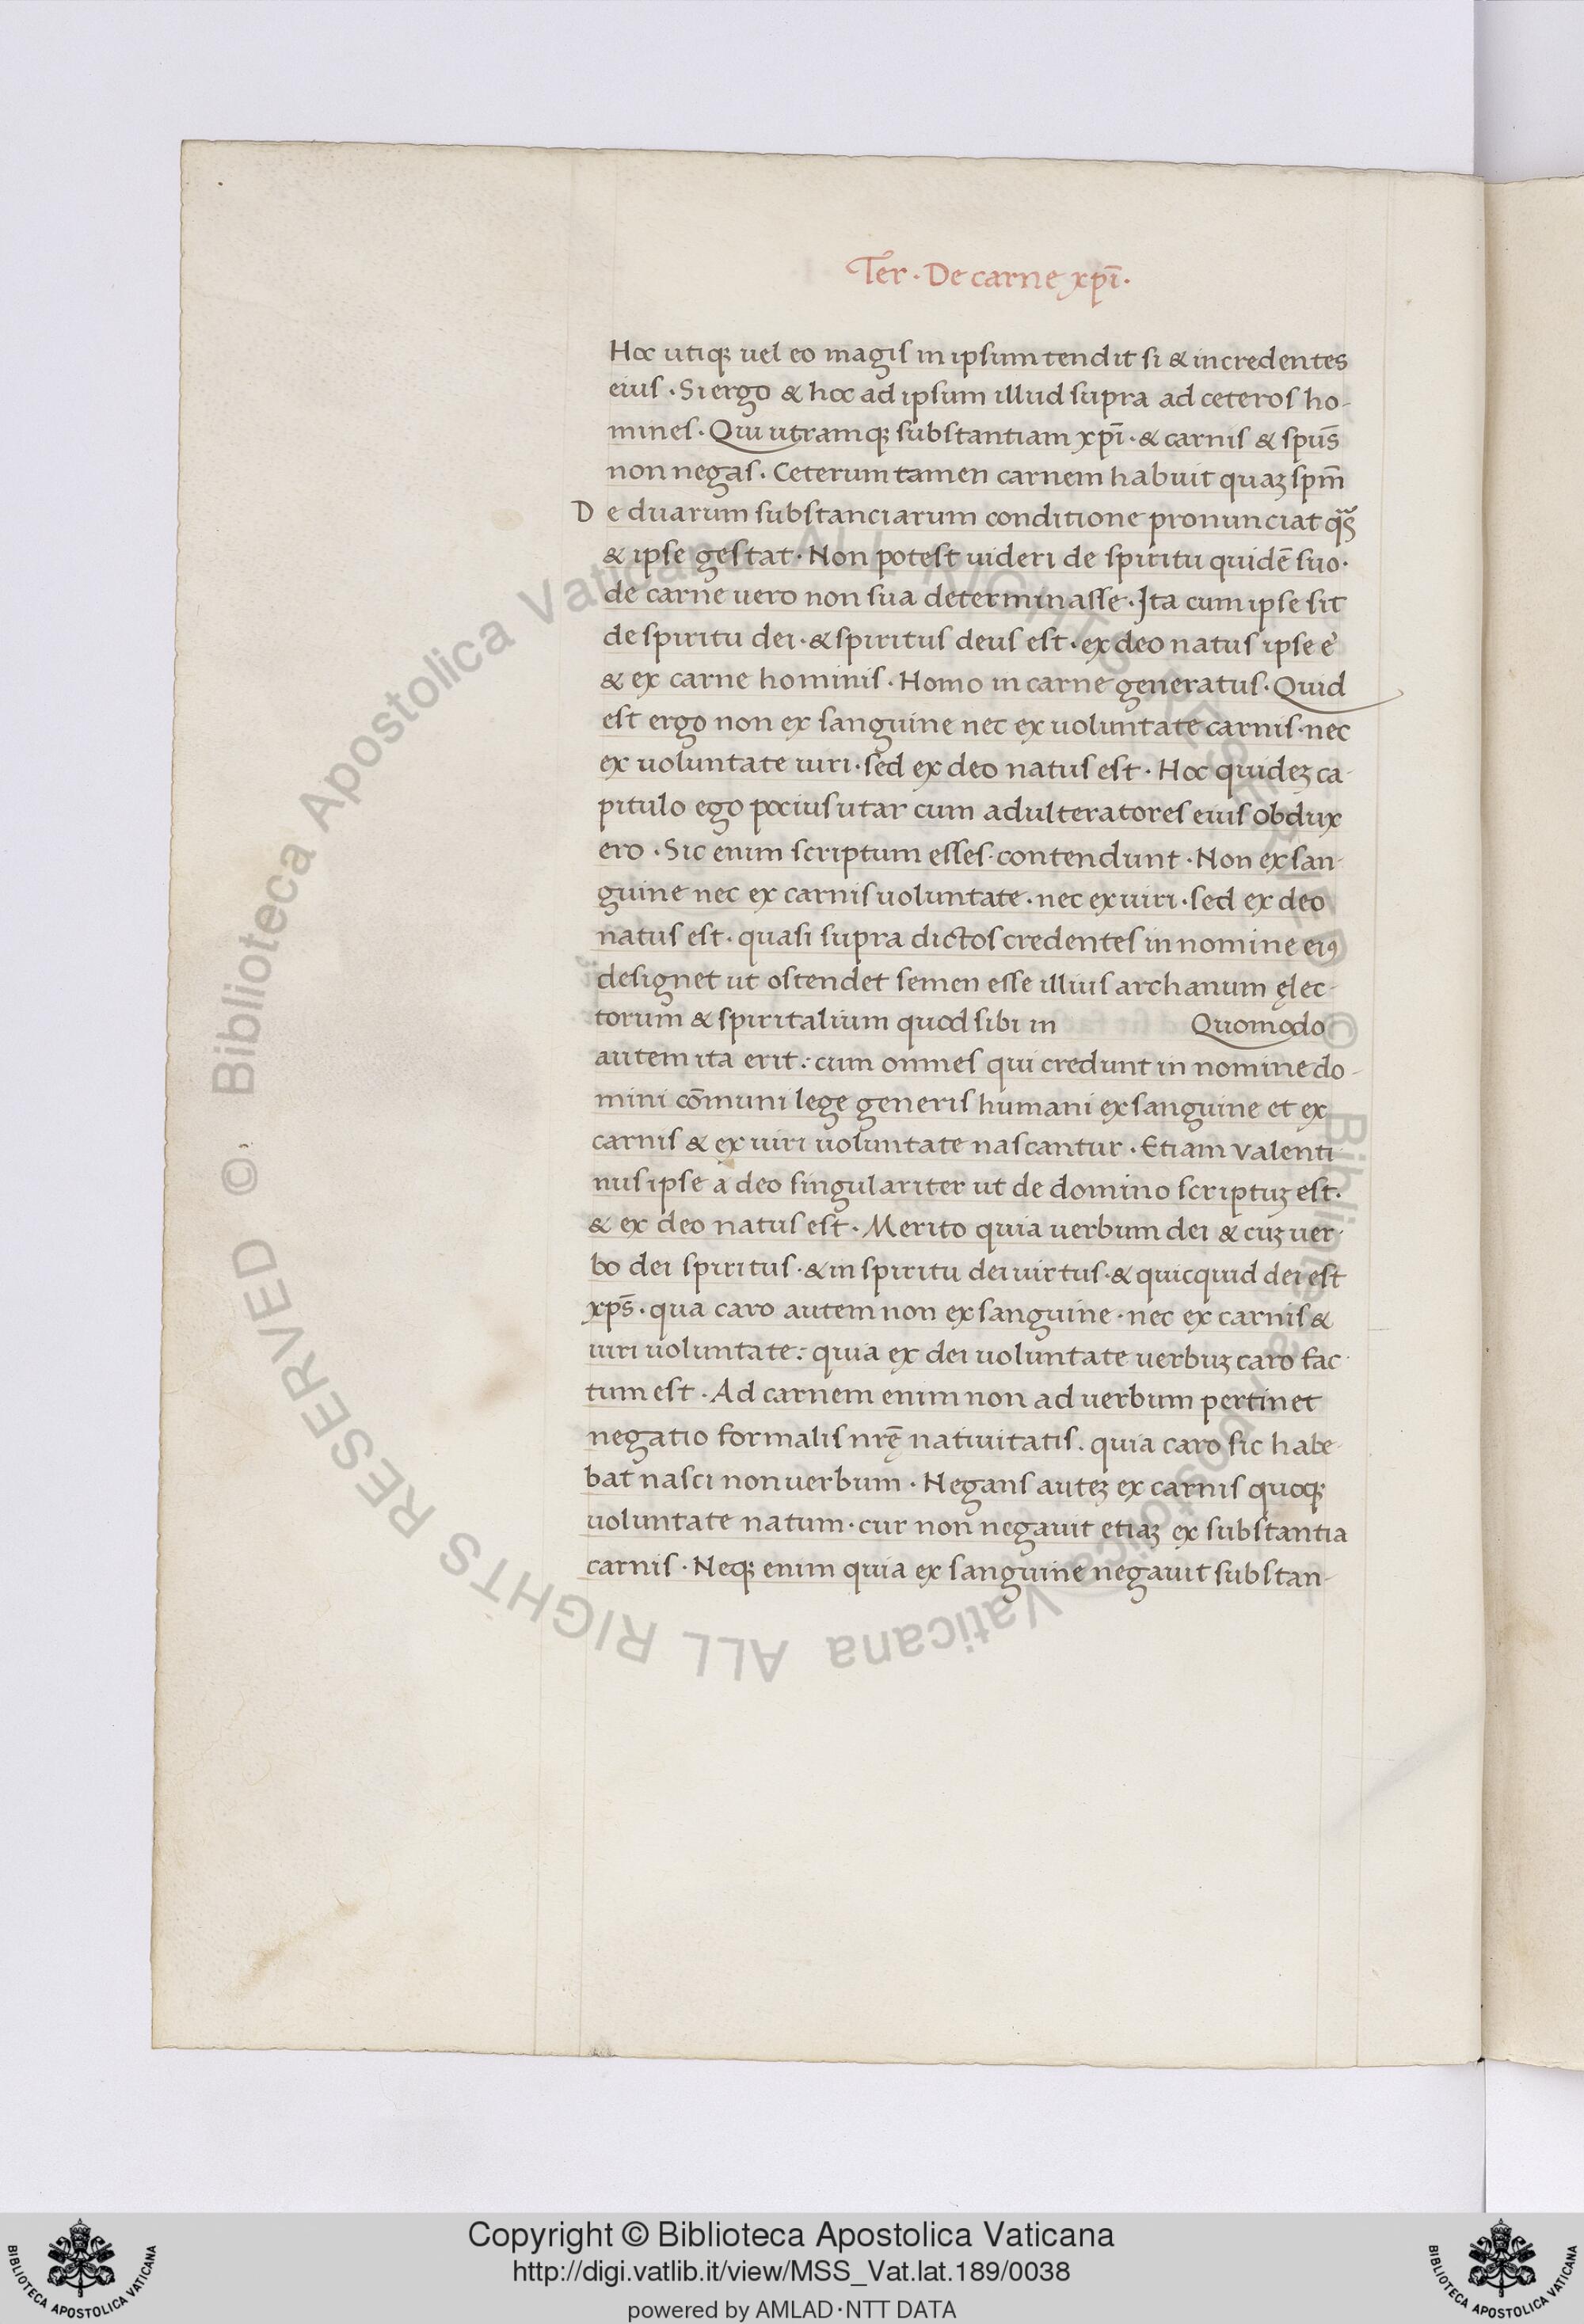 Ter · De carne xpī·
Hoc utiqȝ uel eo magis in ipsum tendit si & incredentes
eius · Si ergo & hoc ad ipsum illud supra ad ceteros ho-
mines · Qui utramqȝ substantiam xpī · & carnis & spūs
non negas · Ceterum tamen carnem habuit quaȝ spm̄
De duarum substanciarum conditione pronunciat qᵃs
& ipse gestat · Non potest uideri de spiritu quidē suo·
de carne uero non sua determinasse · Ita cum ipse sit
de spiritu dei · & spiritus deus est · ex deo natus ipse ē
& ex carne hominis · Homo in carne generatus · Quid
est ergo non ex sanguine nec ex uoluntate carnis · nec
ex uoluntate uiri · sed ex deo natus est · Hoc quideȝ ca-
pitulo ego pocius utar cum adulteratores eius obdux
ero · Sic enim scriptum esses · contendunt · Non ex san-
guine nec ex carnis uoluntate · nec ex uiri · sed ex deo
natus est · quasi supra dictos credentes in nomine eiꝰ
designet ut ostendet semen esse illius archanum ęlec-
torum & spiritalium quod sibi in Quomodo
autem ita erit: cum omnes qui credunt in nomine do-
mini cōmuni lege generis humani ex sanguine et ex
carnis & ex uiri uoluntate nascantur · Etiam valenti
nus ipse a deo singulariter ut de domino scriptuȝ est·
& ex deo natus est · Merito quia uerbum dei & cuȝ uer-
bo dei spiritus · & in spiritu dei uirtus · & quicquid dei est
xps̄ · qua caro autem non ex sanguine · nec ex carnis &
uiri uoluntate: quia ex dei uoluntate uerbuȝ caro fac-
tum est · Ad carnem enim non ad uerbum pertinet
negatio formalis nrę̄ natiuitatis. quia caro sic habe-
bat nasci non uerbum · Negans auteȝ ex carnis quoqȝ
uoluntate natum · cur non negauit etiaȝ ex substantia
carnis · Neqȝ enim quia ex sanguine negauit substan-
© Biblioteca Apostolica Vaticana ALL RIGHTS RESERVED
© Biblioteca Apostolica Vaticana ALL RIGHTS RESERVED
Copyright © Biblioteca Apostolica Vaticana
http://digi.vatlib.it/view/MSS_Vat.lat.189/0038
powered by AMLAD·NTT DATA
BIBLIOTECA APOSTOLICA VATICANA
BIBLIOTECA APOSTOLICA VATICANA